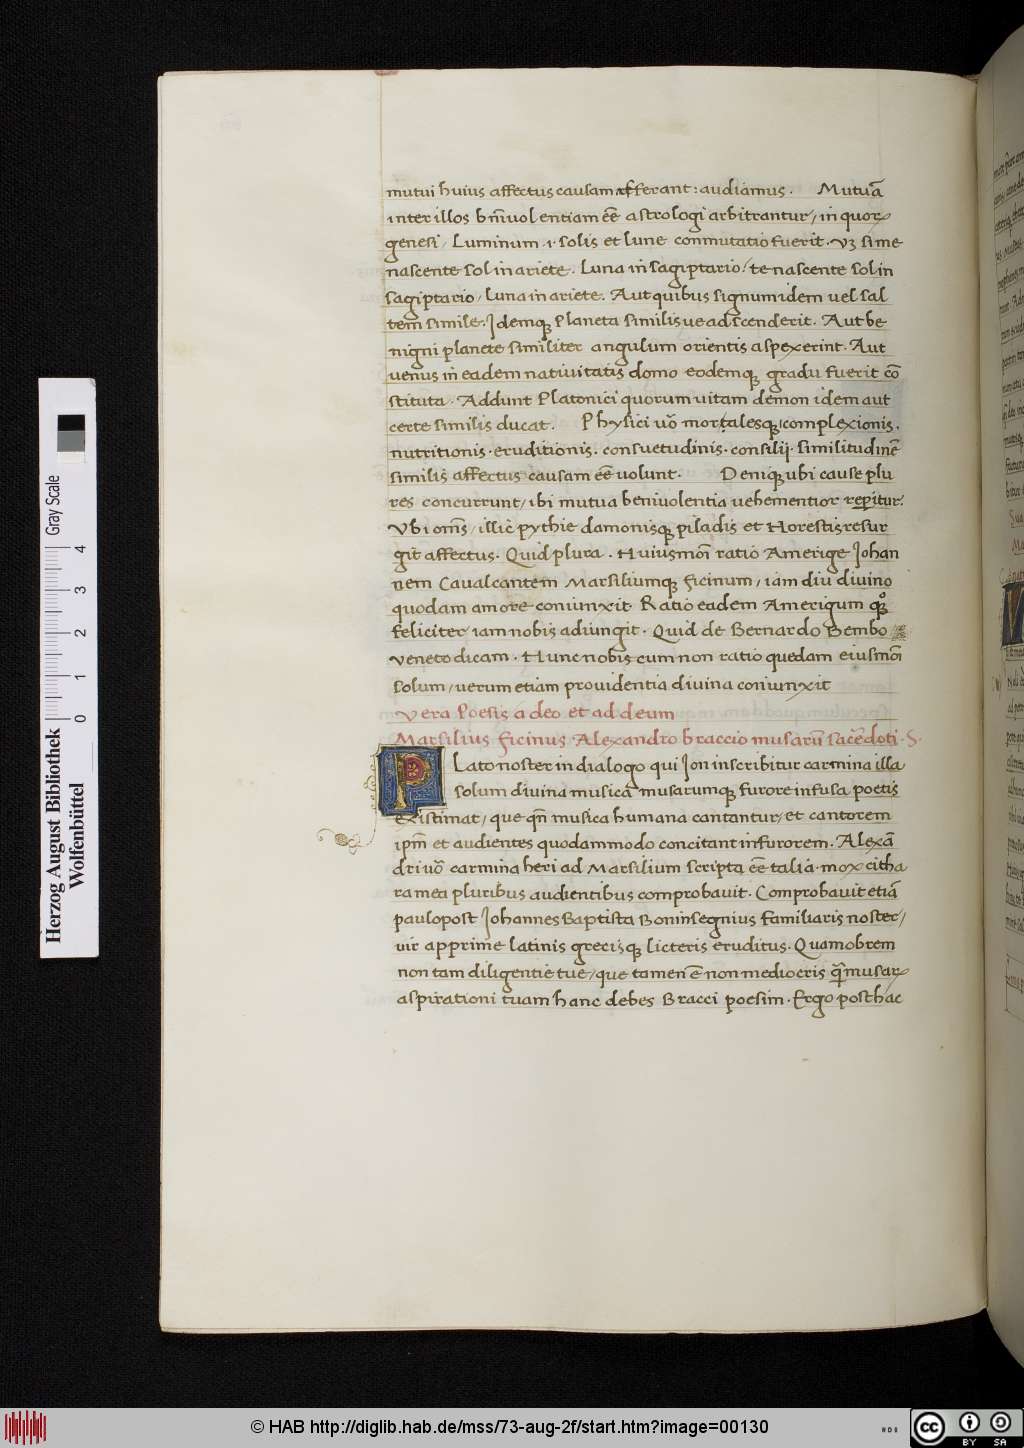 mutui huius affectus causam afferant: audiamus. Mutuā
inter illos bn̄iuolentiam eē astrologi arbitrantur, in quoꝝ
genesi, Luminum .i. solis et lune conmutatio fuerit. Vꝫ si me
nascente sol in ariete. Luna in sagiptario: te nascente sol in
sagiptario, luna in ariete. Aut quibus signum idem uel sal
tem simile. Idemqꝫ planeta similisue adscenderit. Aut be
nigni planete similiter angulum orientis aspexerint. Aut
uenus in eadem natiuitatis domo eodemqꝫ gradu fuerit cō
stituta. Addunt Platonici quorum uitam demon idem aut
certe similis ducat. Physici uō mortalesqꝫ, complexionis.
nutritionis. eruditionis. consuetudinis. consilij. similitudinē
similis affectus causam eē uolunt. Deniqꝫ ubi cause plu
res concurrunt, ibi mutua beniuolentia uehementior reperitur.
Vbi om̄s, illic pythie damonisqꝫ piladis et Horestis resur
git affectus. Quid plura. Huiusmōi ratio Amerige Johan
nem Caualcantem Marsiliumqꝫ ficinum, iam diu diuino
quodam amore coniunxit Ratio eadem Amerigum qꝫ
feliciter iam nobis adiungit. Quid de Bernardo Bembo
veneto dicam. Hunc nobiscum non ratio quedam eiusmōi
solum, uerum etiam prouidentia diuina coniunxit
Vera Poesis a deo et ad deum
Marsilius ficinus Alexandro braccio musarū sacēdoti. S.
Plato noster in dialogo qui Jon inscribitur carmina illa
solum diuina musicā musarumqꝫ furore infusa poetis
existimat, que qn̄ musica humana cantantur, et cantorem
ipm̄ et audientes quodammodo concitant in furorem. Alexā
dri uō carmina heri ad Marsilium scripta eē talia. mox citha
ra mea pluribus audientibus comprobauit. Comprobauit etiā
paulopost Johannes Baptista Boninsegnius familiaris noster,
uir apprime latinis grecisqꝫ licteris eruditus. Quamobrem
non tam diligentie tue, que tamen ē non mediocris q̄ musaꝝ
aspirationi tuam hanc debes Bracci poesim. Ergo posthac
Herzog August Bibliothek
Wolfenbüttel
Gray Scale
0 1 2 3 4
© HAB http://diglib.hab.de/mss/73-aug-2f/start.htm?image=00130
cc BY SA